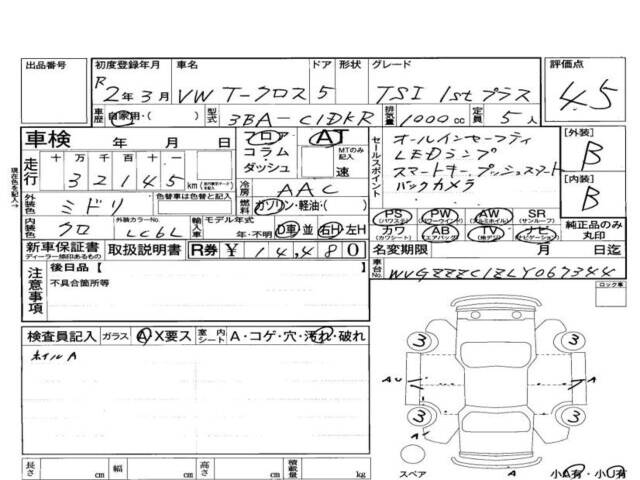 出品番号 初度登録年月 車名 ドア 形状 グレード 評価点
R2年3月 VW T-クロス 5 TSI 1stプラス 4.5
車歴 自家用・( ) 型式 3BA-C1DKR 排気量 1000cc 定員 5人
車検 年 月 日 フロア AT セールスポイント オールインセーフティ 【外装】
コラム MTのみ記入 LEDランプ B
ダッシュ 速 スマートキー プッシュスタート
走行 十 万 千 百 十 一 バックカメラ
3 2 1 4 5 km 冷房 AAC 【内装】
現在色を記入→ 外装色 ミドリ 色替車は色替と記入 燃料 ガソリン・軽油・( ) B
PS (パワステ) PW (パワーウインド) AW (アルミホイル) SR (サンルーフ) 純正品のみ丸印
内装色 クロ 外装カラーNo. LC6L 輸入車 モデル年式 年・不明 D車 並 右H 左H カワ (カワシート) AB (エアバッグ) TV ナビ (ナビゲーション)
新車保証書 ディーラー印のあるもの 取扱説明書 R券 ¥ 14,480 名変期限 月 日迄
注意事項 後日品【 】 車台No. WVGZZZC1ZLY067344
不具合箇所等 ロック車
検査員記入 ガラス A・X要ス 室内シート A・コゲ・穴・汚れ・破れ
ホイルA
3 3
A A
3 3
長さ cm 幅 cm 高さ cm 積載量 kg スペア A 小A有・小U有